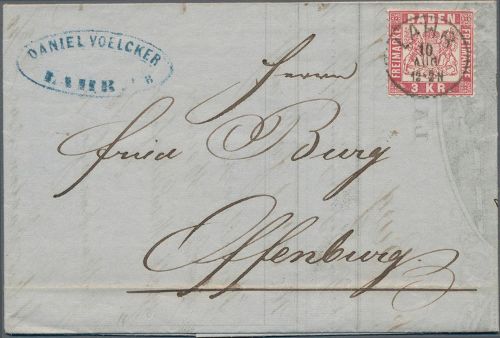 DANIEL VOELCKER
LAHR
BADEN
FREIMARKE
FREIMARKE
3 KR
LAHR
10
AUG
12-2N
Herrn
fried Burg
Offenburg.